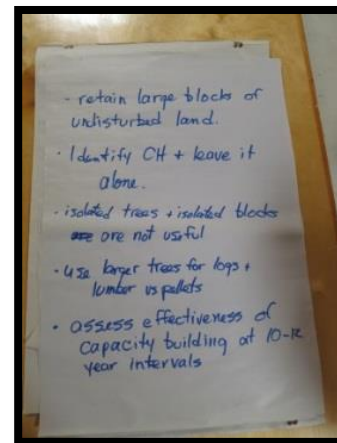 - retain large blocks of
undisturbed land.
· Identify CH + leave it
alone.
- isolated trees + isolated blocks
are not useful
· use larger trees for logs +
lumber vs pellets
· assess effectiveness of
capacity building at 10-12
year intervals